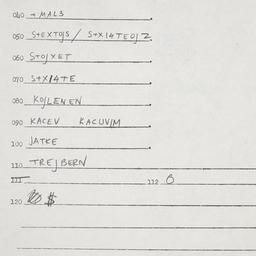 040 → MAL3
050 S+EXTOJS / S+X14TEOJ2
060 STOJXET
070 S+X14TE
080 KOJLENEN
090 KACEV KACUVJM
100 JATKE
110 TREJBERN
111 112 6
120 $